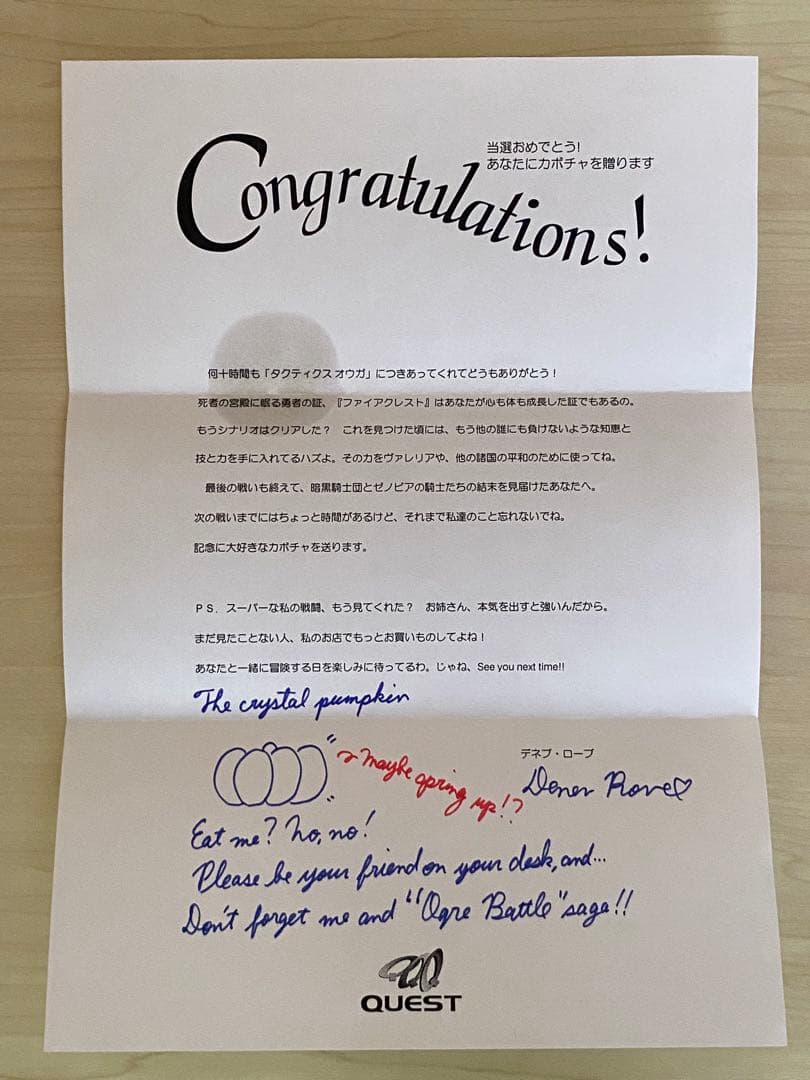 当選おめでとう!
あなたにカボチャを贈ります
Congratulations!
何十時間も「タクティクス オウガ」につきあってくれてどうもありがとう！
死者の宮殿に眠る勇者の証、『ファイアクレスト』はあなたが心も体も成長した証でもあるの。
もうシナリオはクリアした？　これを見つけた頃には、もう他の誰にも負けないような知恵と
技と力を手に入れてるハズよ。その力をヴァレリアや、他の諸国の平和のために使ってね。
最後の戦いも終えて、暗黒騎士団とゼノビアの騎士たちの結末を見届けたあなたへ。
次の戦いまでにはちょっと時間があるけど、それまで私達のこと忘れないでね。
記念に大好きなカボチャを送ります。
ＰＳ．スーパーな私の戦闘、もう見てくれた？　お姉さん、本気を出すと強いんだから。
まだ見たことない人、私のお店でもっとお買いものしてよね！
あなたと一緒に冒険する日を楽しみに待ってるわ。じゃね、See you next time!!
The crystal pumpkin
デネブ・ローブ
Maybe spring up!?
Denev Rove♡
Eat me? No, no!
Please be your friend on your desk, and...
Don't forget me and "Ogre Battle" saga!!
QUEST